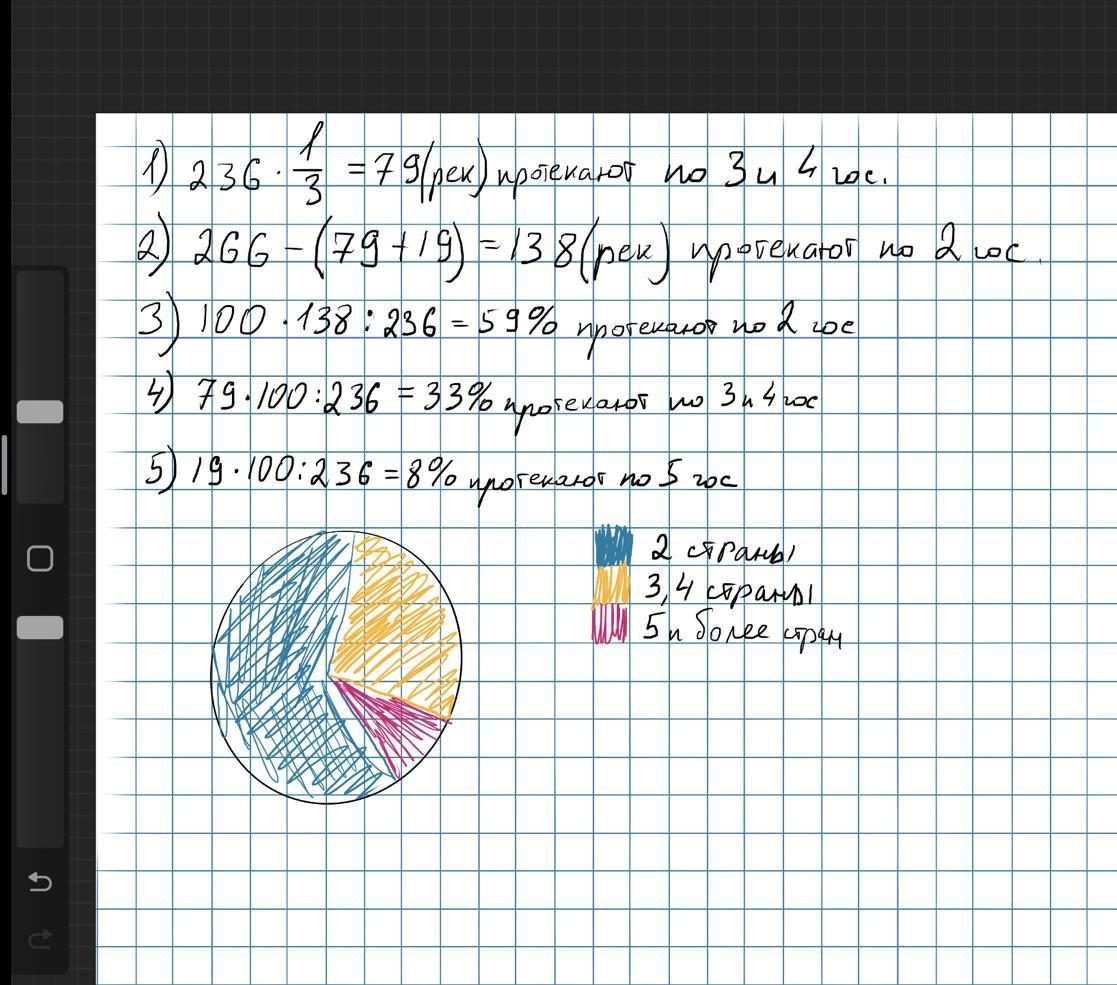 1) 236 · 1/3 = 79(рек) протекают по 3 и 4 гос.
2) 266 - (79 + 19) = 138(рек) протекают по 2 гос.
3) 100 · 138 : 236 = 59% протекают по 2 гос
4) 79 · 100 : 236 = 33% протекают по 3 и 4 гос
5) 19 · 100 : 236 = 8% протекают по 5 гос
2 страны
3,4 страны
5 и более стран